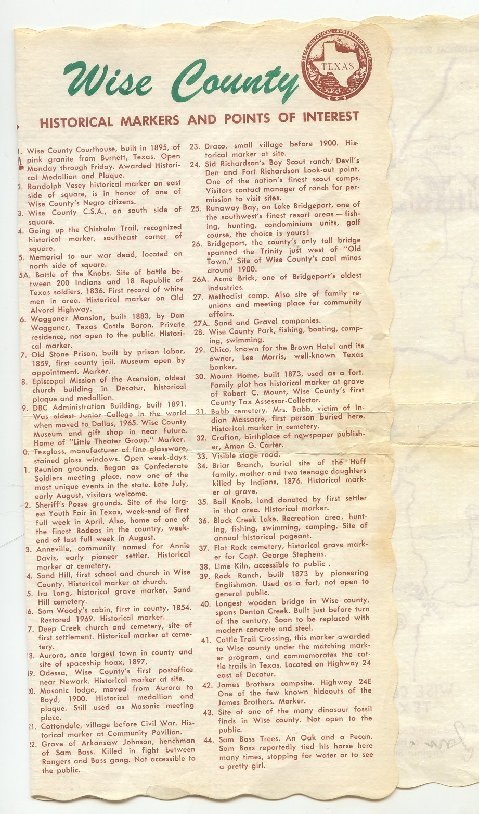 Wise County
TEXAS
HISTORICAL MARKERS AND POINTS OF INTEREST
1. Wise County Courthouse, built in 1895, of
pink granite from Burnett, Texas. Open
Monday through Friday. Awarded Histori-
cal Medallion and Plaque.
2. Randolph Vesey historical marker on east
side of square, is in honor of one of
Wise County's Negro citizens.
3. Wise County C.S.A., on south side of
square.
4. Going up the Chisholm Trail, recognized
historical marker, southeast corner of
square.
5. Memorial to our war dead, located on
north side of square.
5A. Battle of the Knobs. Site of battle be-
tween 200 Indians and 18 Republic of
Texas soldiers, 1836. First record of white
men in area. Historical marker on Old
Alvord Highway.
6. Waggoner Mansion, built 1883, by Dan
Waggoner, Texas Cattle Baron. Private
residence, not open to the public. Histori-
cal marker.
7. Old Stone Prison, built by prison labor,
1859, first county jail. Museum open by
appointment. Marker.
8. Episcopal Mission of the Ascension, oldest
church building in Decatur, historical
plaque and medallion.
9. DBC Administration Building, built 1891.
Was oldest Junior College in the world
when moved to Dallas, 1965. Wise County
Museum and gift shop in near future.
Home of "Little Theater Group." Marker.
0. Texglass, manufacturer of fine glassware,
stained glass windows. Open week-days.
1. Reunion grounds. Began as Confederate
Soldiers meeting place, now one of the
most unique events in the state. Late July,
early August, visitors welcome.
2. Sheriff's Posse grounds. Site of the larg-
est Youth Fair in Texas, week-end of first
full week in April. Also, home of one of
the finest Rodeos in the country, week-
end of last full week in August.
3. Anneville, community named for Annie
Davis, early pioneer settler. Historical
marker at cemetery.
4. Sand Hill, first school and church in Wise
County. Historical marker at church.
5. Ira Long, historical grave marker, Sand
Hill cemetery.
6. Sam Woody's cabin, first in county, 1854.
Restored 1969. Historical marker.
7. Deep Creek church and cemetery, site of
first settlement. Historical marker at ceme-
tery.
8. Aurora, once largest town in county and
site of spaceship hoax, 1897.
9. Odessa, Wise County's first postoffice
near Newark. Historical marker at site.
0. Masonic lodge, moved from Aurora to
Boyd, 1900. Historical medallion and
plaque. Still used as Masonic meeting
place.
1. Cottondale, village before Civil War. His-
torical marker at Community Pavilion.
2. Grave of Arkansaw Johnson, henchman
of Sam Bass. Killed in fight between
Rangers and Bass gang. Not accessible to
the public.
23. Draco, small village before 1900. His-
torical marker at site.
24. Sid Richardson's Boy Scout ranch, Devil's
Den and Fort Richardson Look-out point.
One of the nation's finest scout camps.
Visitors contact manager of ranch for per-
mission to visit sites.
25. Runaway Bay, on Lake Bridgeport, one of
the southwest's finest resort areas — fish-
ing, hunting, condominium units, golf
course, the choice is yours!
26. Bridgeport, the county's only toll bridge
spanned the Trinity just west of "Old
Town." Site of Wise County's coal mines
around 1900.
26A. Acme Brick, one of Bridgeport's oldest
industries.
27. Methodist camp. Also site of family re-
unions and meeting place for community
affairs.
27A. Sand and Gravel companies.
28. Wise County Park, fishing, boating, camp-
ing, swimming.
29. Chico, known for the Brown Hotel and its
owner, Lee Morris, well-known Texas
banker.
30. Mount Home, built 1873, used as a fort.
Family plot has historical marker at grave
of Robert C. Mount, Wise County's first
County Tax Assessor-Collector.
31. Babb cemetery, Mrs. Babb, victim of In-
dian Massacre, first person buried here.
Historical marker in cemetery.
32. Crafton, birthplace of newspaper publish-
er, Amon G. Carter.
33. Visible stage road.
34. Briar Branch, burial site of the Huff
family, mother and two teenage daughters
killed by Indians, 1876. Historical mark-
er at grave.
35. Ball Knob, land donated by first settler
in that area. Historical marker.
36. Black Creek Lake. Recreation area, hunt-
ing, fishing, swimming, camping. Site of
annual historical pageant.
37. Flat Rock cemetery, historical grave mark-
er for Capt. George Stephens.
38. Lime Kiln, accessible to public.
39. Rock Ranch, built 1873 by pioneering
Englishman. Used as a fort, not open to
general public.
40. Longest wooden bridge in Wise county,
spans Denton Creek. Built just before turn
of the century. Soon to be replaced with
modern concrete and steel.
41. Cattle Trail Crossing, this marker awarded
to Wise county under the matching mark-
er program, and commemorates the cat-
tle trails in Texas. Located on Highway 24
east of Decatur.
42. James Brothers campsite. Highway 24E
One of the few known hideouts of the
James Brothers. Marker.
43. Site of one of many dinosaur fossil
finds in Wise county. Not open to the
public.
44. Sam Bass Trees. An Oak and a Pecan.
Sam Bass reportedly tied his horse here
many times, stopping for water or to see
a pretty girl.